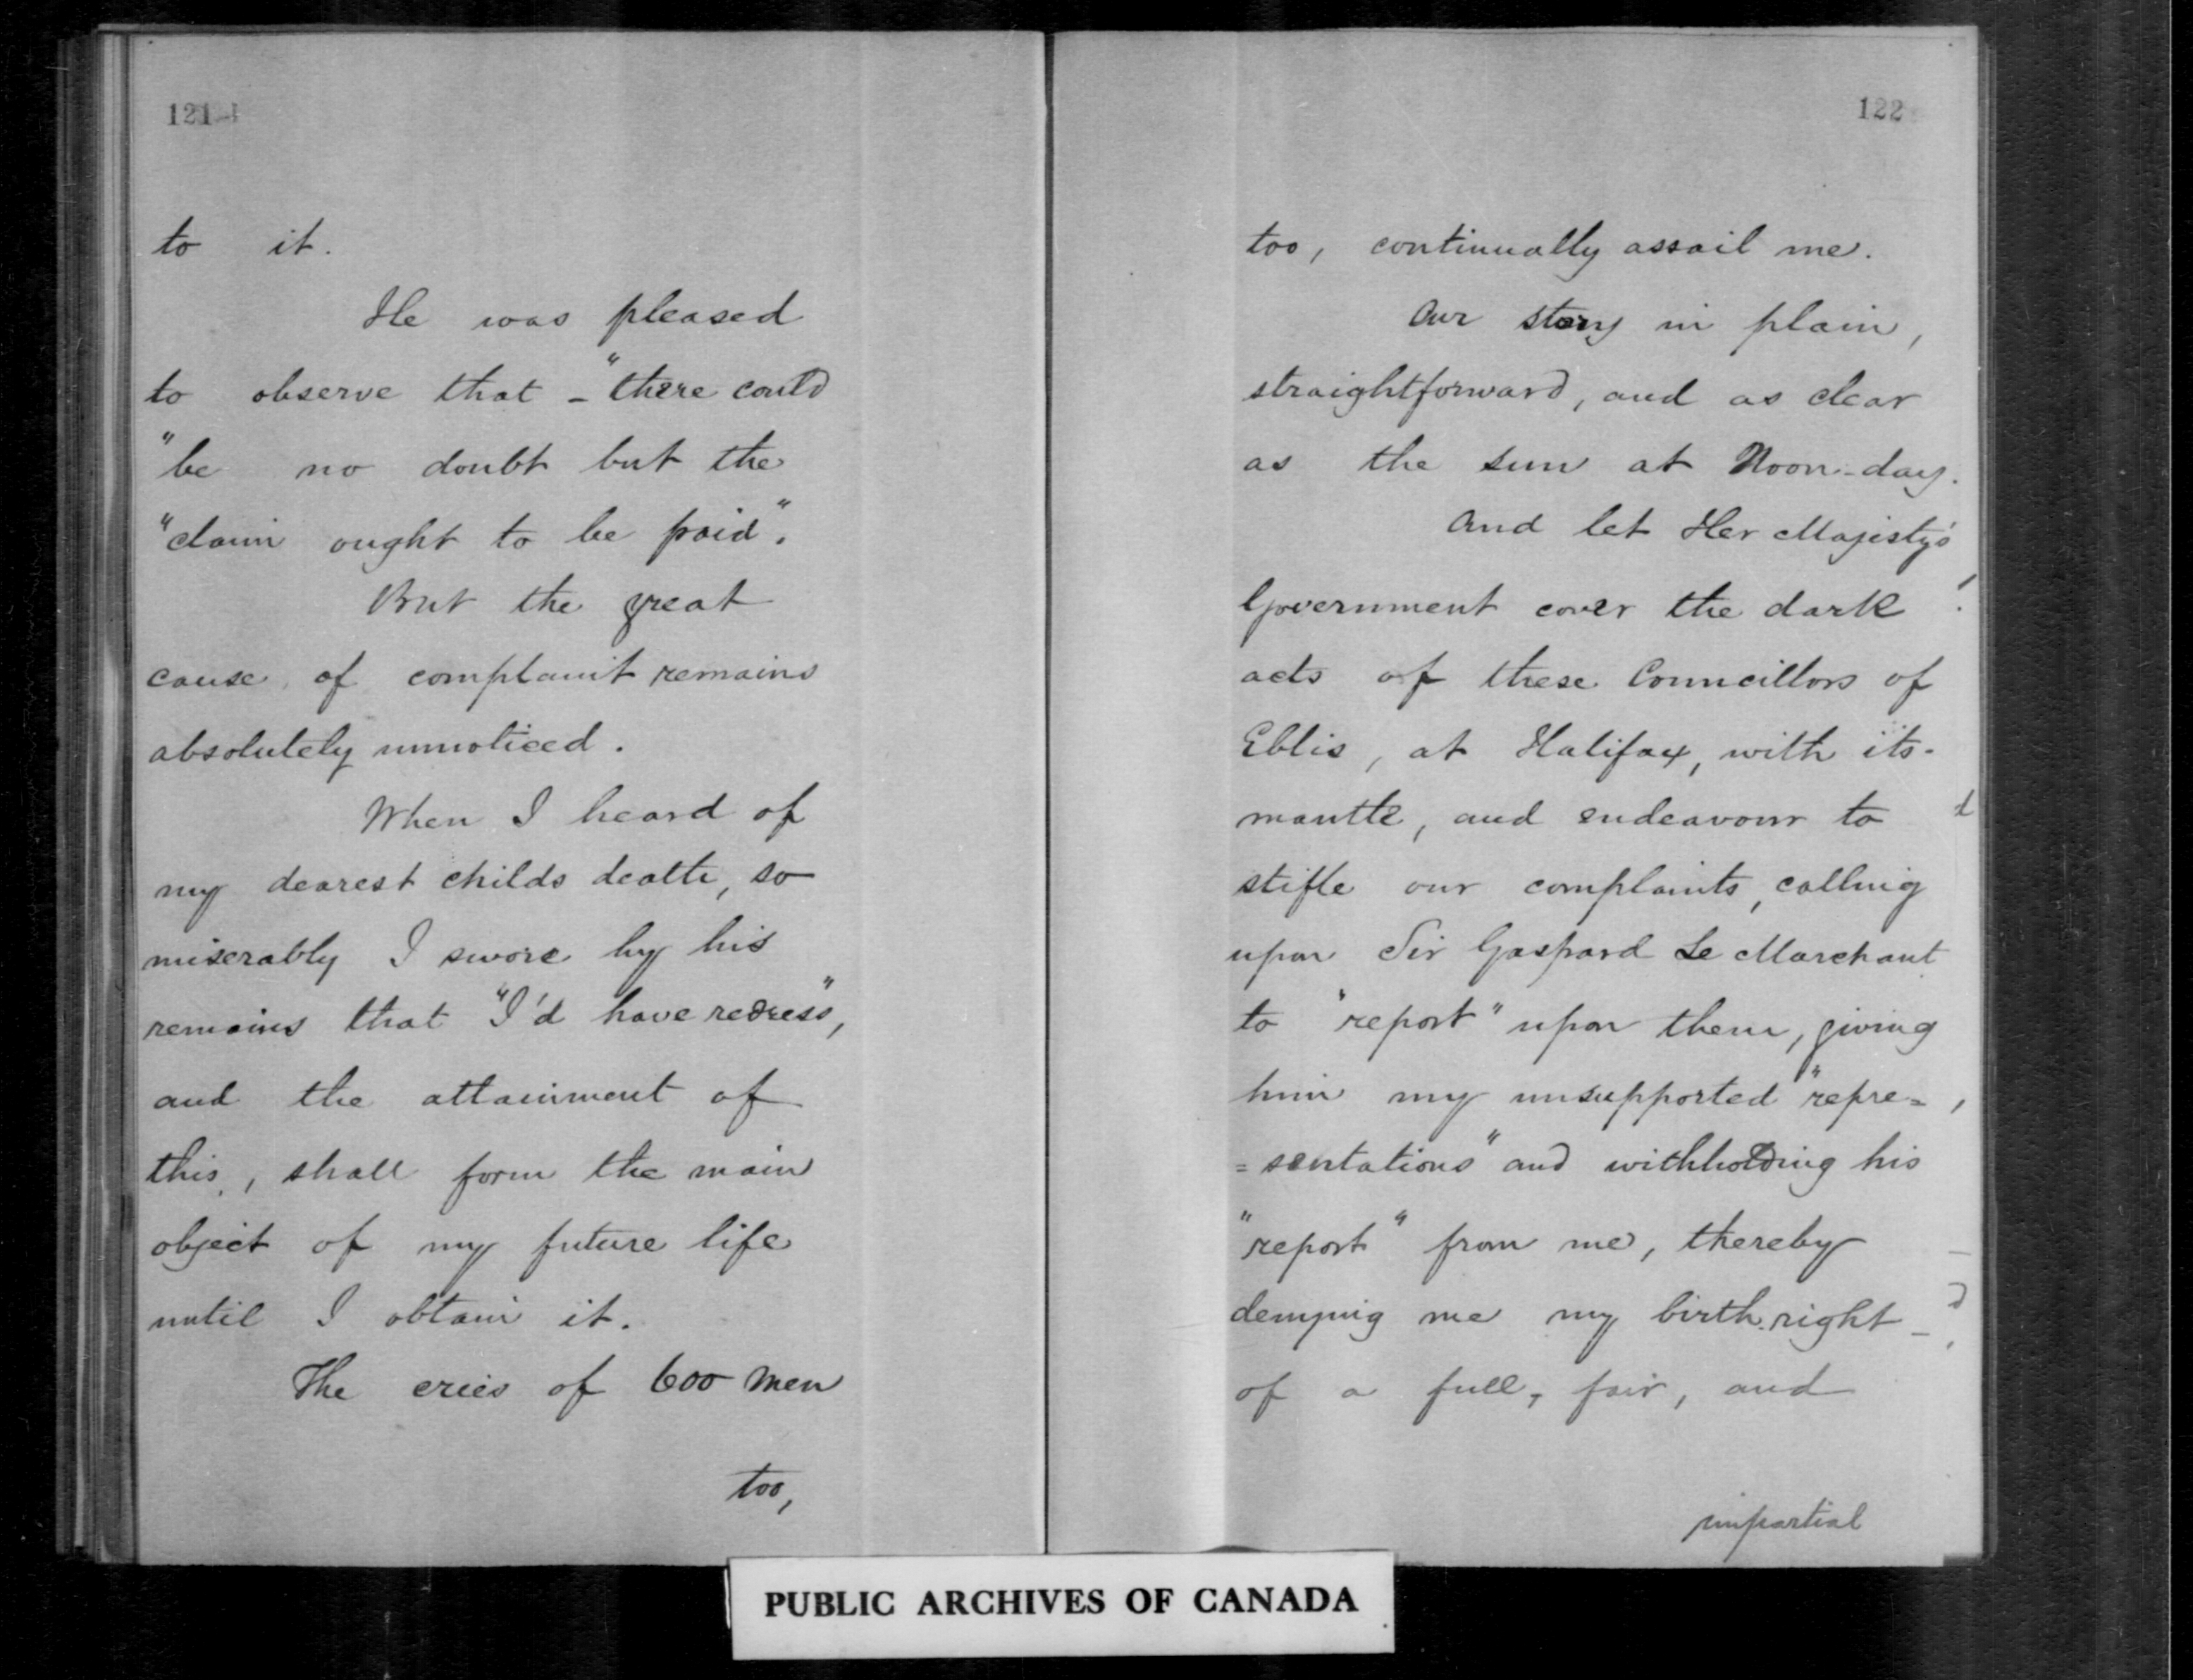 121
to it.
He was pleased
to observe that - "there could
"be no doubt but the
"claim ought to be paid".
But the great
cause of complaint remains
absolutely unnoticed.
When I heard of
my dearest childs death, so
miserably I swore by his
remains that "I'd have redress",
and the attainment of
this, shall form the main
object of my future life
until I obtain it.
The cries of 600 men
too,
122
too, continually assail me.
Our story in plain,
straightforward, and as clear
as the sun at Noon-day.
And let Her Majesty's
Government cover the dark
acts of these Councillors of
Eblis, at Halifax, with its
mantle, and endeavour to
stifle our complaints, calling
upon Sir Gaspard Le Marchant
to "report" upon them, giving
him my unsupported "repre=
=sentations" and withholding his
"report" from me, thereby
denying me my birth-right
of a full, fair, and
impartial
PUBLIC ARCHIVES OF CANADA